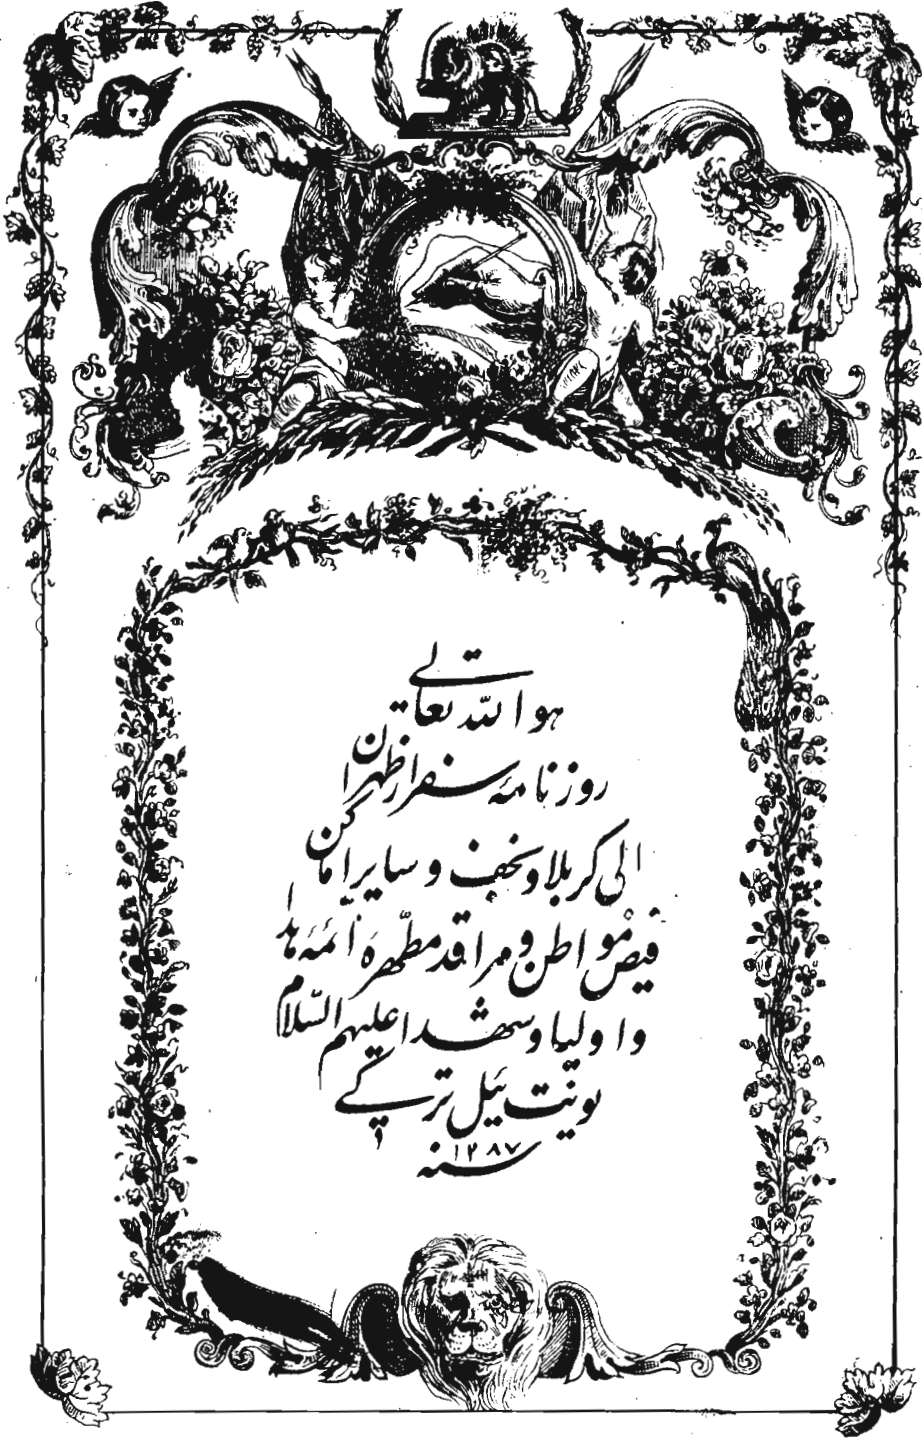 هو الله تعالی
روزنامهٔ سفر از طهران
الی کربلا و نجف و سایر اماکن
فیض مواطن و مراقد مطهرهٔ ائمهٔ هدا
و اولیا و شهدا علیهم السّلام
یونت ئیل ترکی
سنه ۱۲۸۷